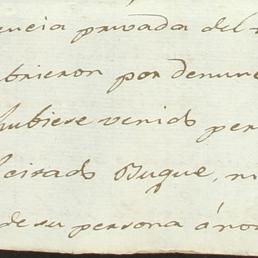 encia privada del
brieron por denun
hubiese venido per
citado Buque, ni
de su persona á no